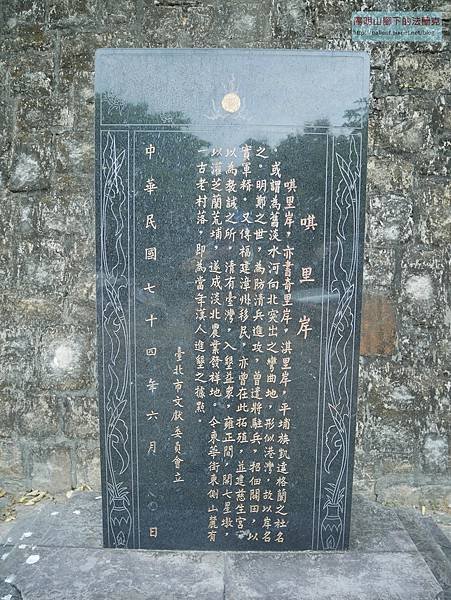 陽明山腳下的法蘭克
唭里岸
唭里岸，亦書奇里岸，淇里岸，平埔族凱達格蘭之社名
，或謂為舊淡水河向北突出之彎曲地，形似港灣，故以岸名
之。明鄭之世，為防清兵進攻，曾遣將駐兵，招佃闢田，以
實軍糈。又傳福建漳州移民，亦曾在此拓殖，並建慈生宮，
以為教誠之所。清有臺灣，入墾益眾，雍正間，開七星墩，
以灌芝蘭荒埔，遂成淡北農業發祥地。今東華街東側山麓有
一古老村落，即為當年漢人進墾之據點。
臺北市文獻委員會立
中華民國七十四年六月 日